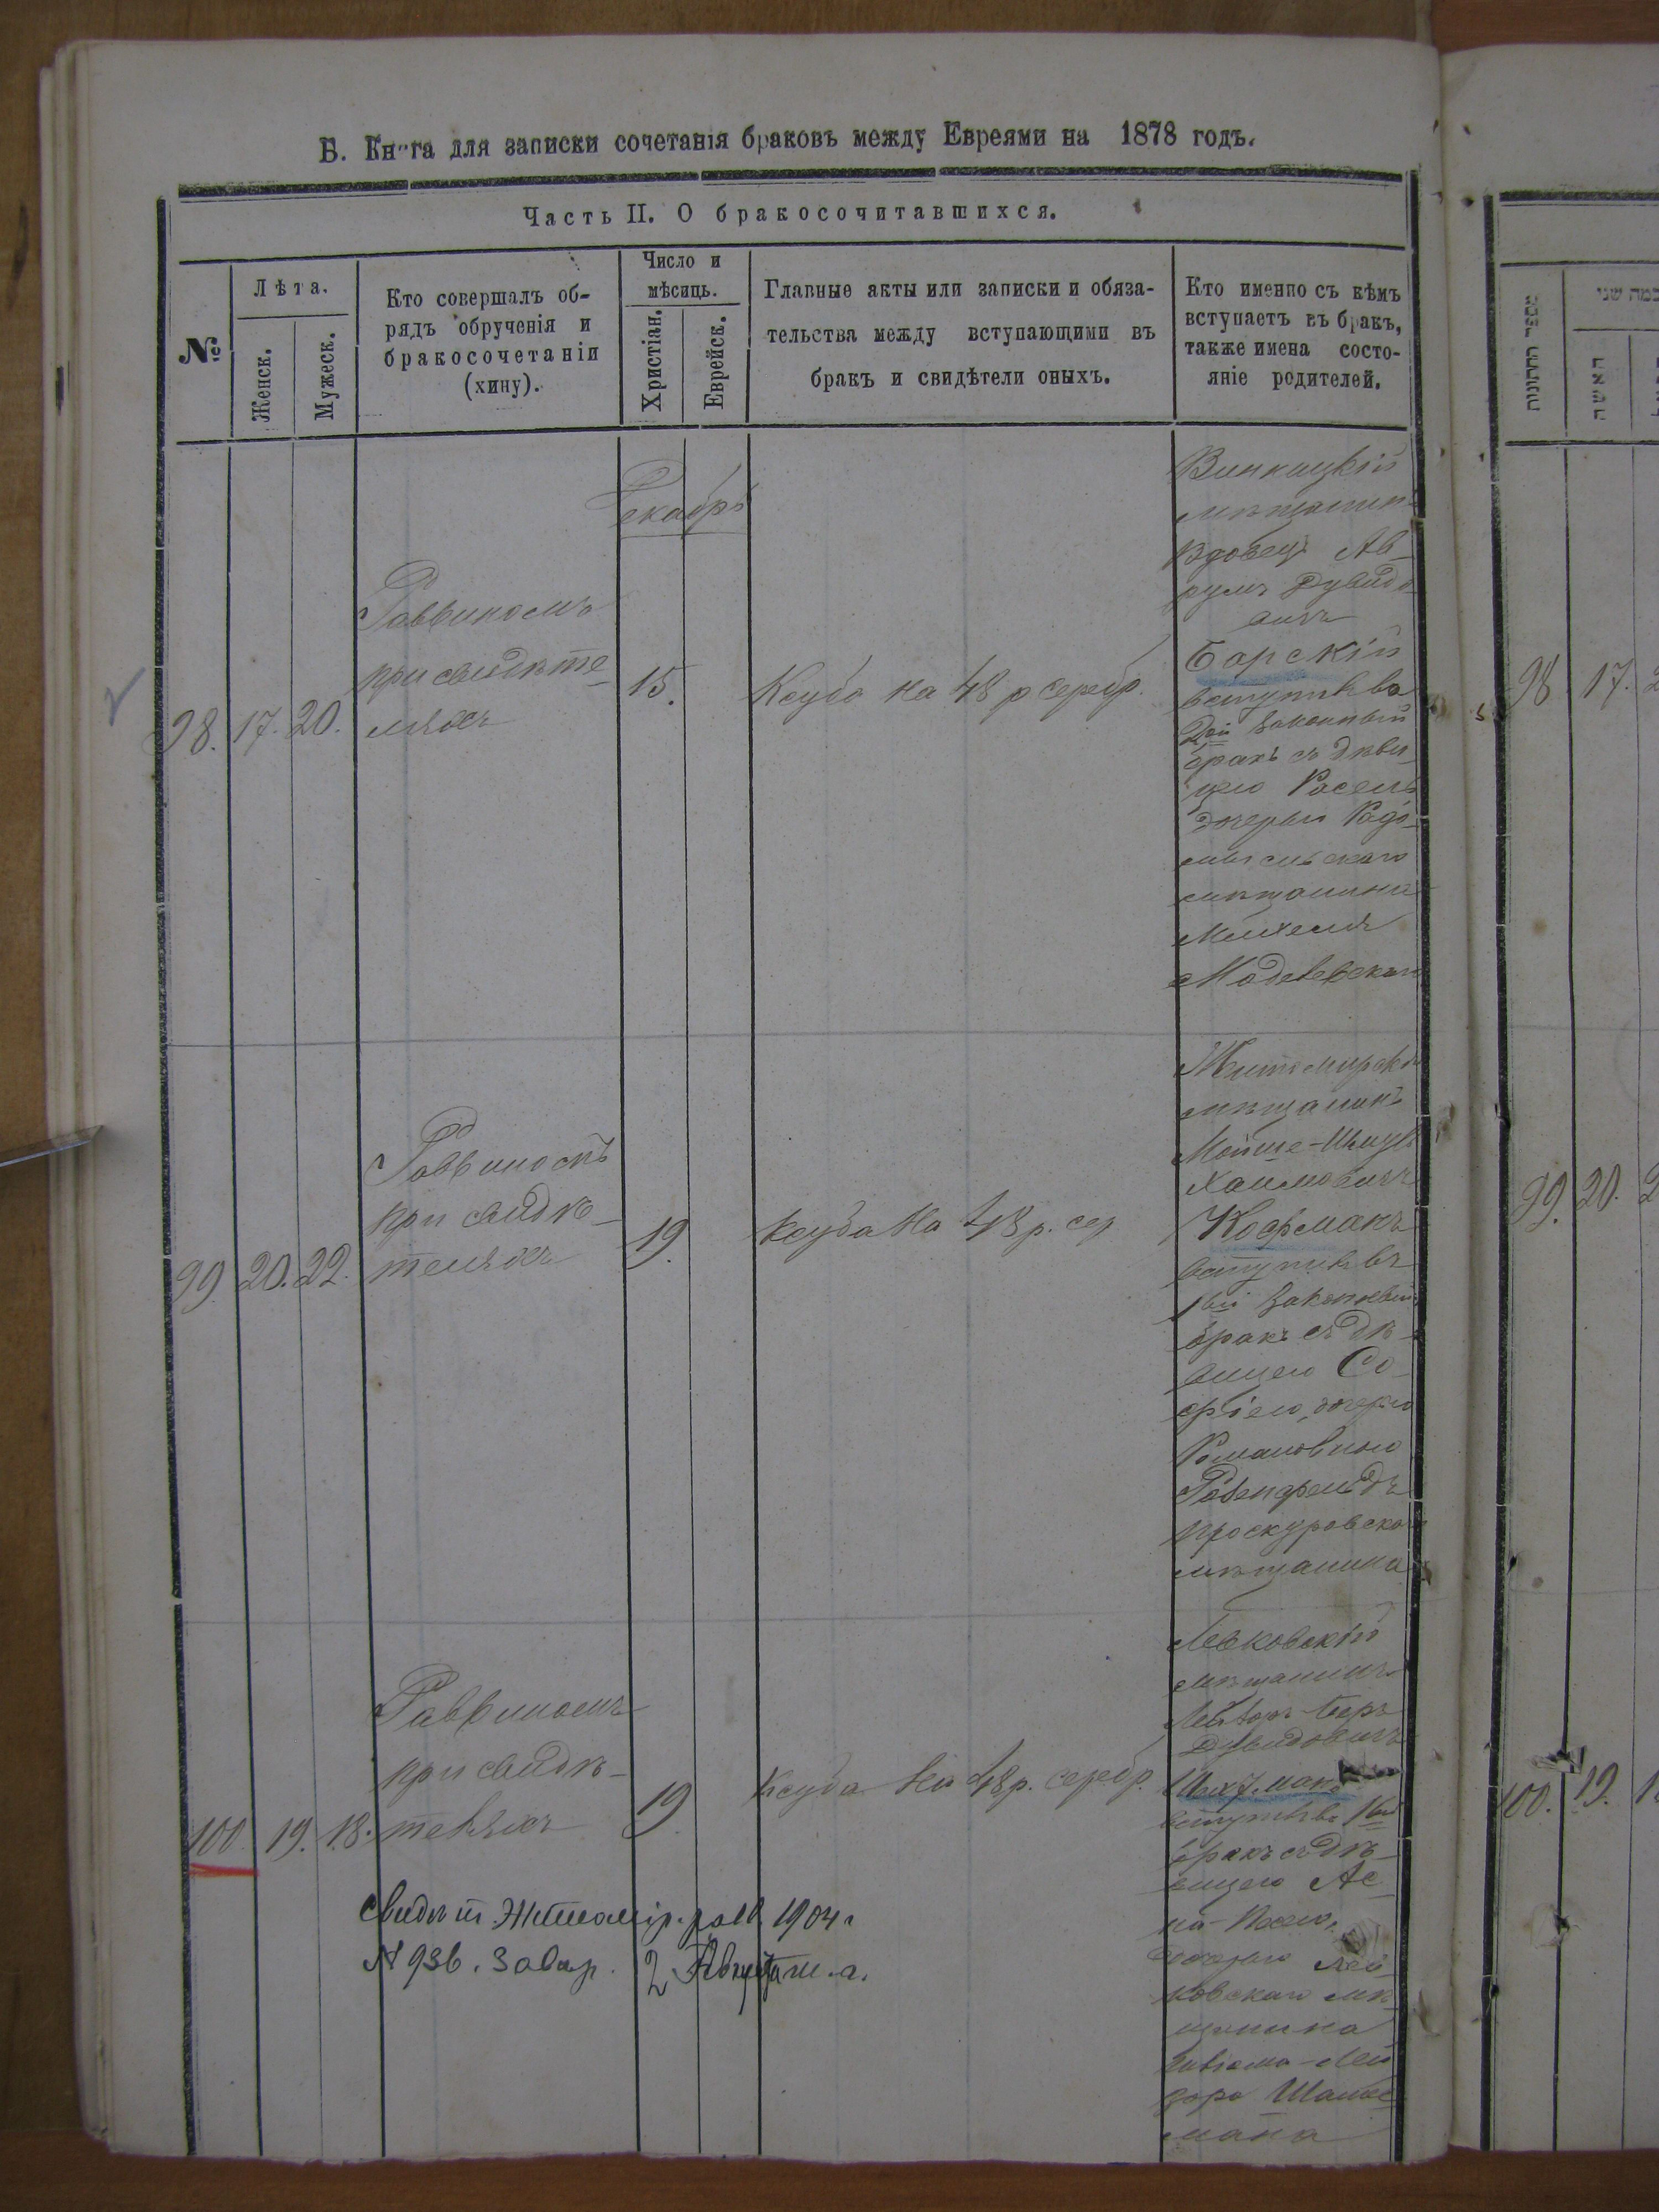 Б. Книга для записки сочетанія браковъ между Евреями на 1878 годъ.
Часть II. О бракосочитавшихся.
№
Лѣта.
Женск.
Мужеск.
Кто совершалъ об-
рядъ обрученія и
бракосочетаніи
(хину).
Число и
мѣсяць.
Христіан.
Еврейск.
Главные акты или записки и обяза-
тельства между вступающими въ
бракъ и свидѣтели оныхъ.
Кто именно съ кѣмъ
вступаетъ въ бракъ,
также имена состо-
яніе родителей.
Декабрь
98. 17. 20.
Раввиномъ
при свидѣте-
ляхъ
15.
Ксуба на 48 р серебр.
Винницкій
мѣщанинъ
Вдовецъ Ав-
румъ Дувидо
вичъ
Барскій
вступилъ во
2ой законный
бракъ съ дѣви
цею
дочерью Радо-
мысльскаго
мѣщанина
Михеля
99 20. 22.
Раввиномъ
при свидѣ-
теляхъ
19.
Ксуба на 48 р. сер
Житомирскій
мѣщанинъ
Мойше-Ицикъ
Хаимовичъ
Кофманъ
вступилъ въ
1ый законный
бракъ съ дѣ-
вицею Со-
фіею, дочерью
Романовною
Розенфельдъ
Проскуровскаго
мѣщанина
100 19. 18.
Раввиномъ
при свидѣ-
теляхъ
19
Ксуба на 48 р. серебр.
мѣщанинъ
Дувидовичъ
вступилъ въ 1ый
бракъ съ дѣ-
вицею
дочерью
ковскаго мѣ-
щанина
свидѣт Житомір. равв 1904 г
N 936. 2 Августа
98 17.
99. 20. 2
100. 19. 1
מספר החתונות
כמה שני
האשה